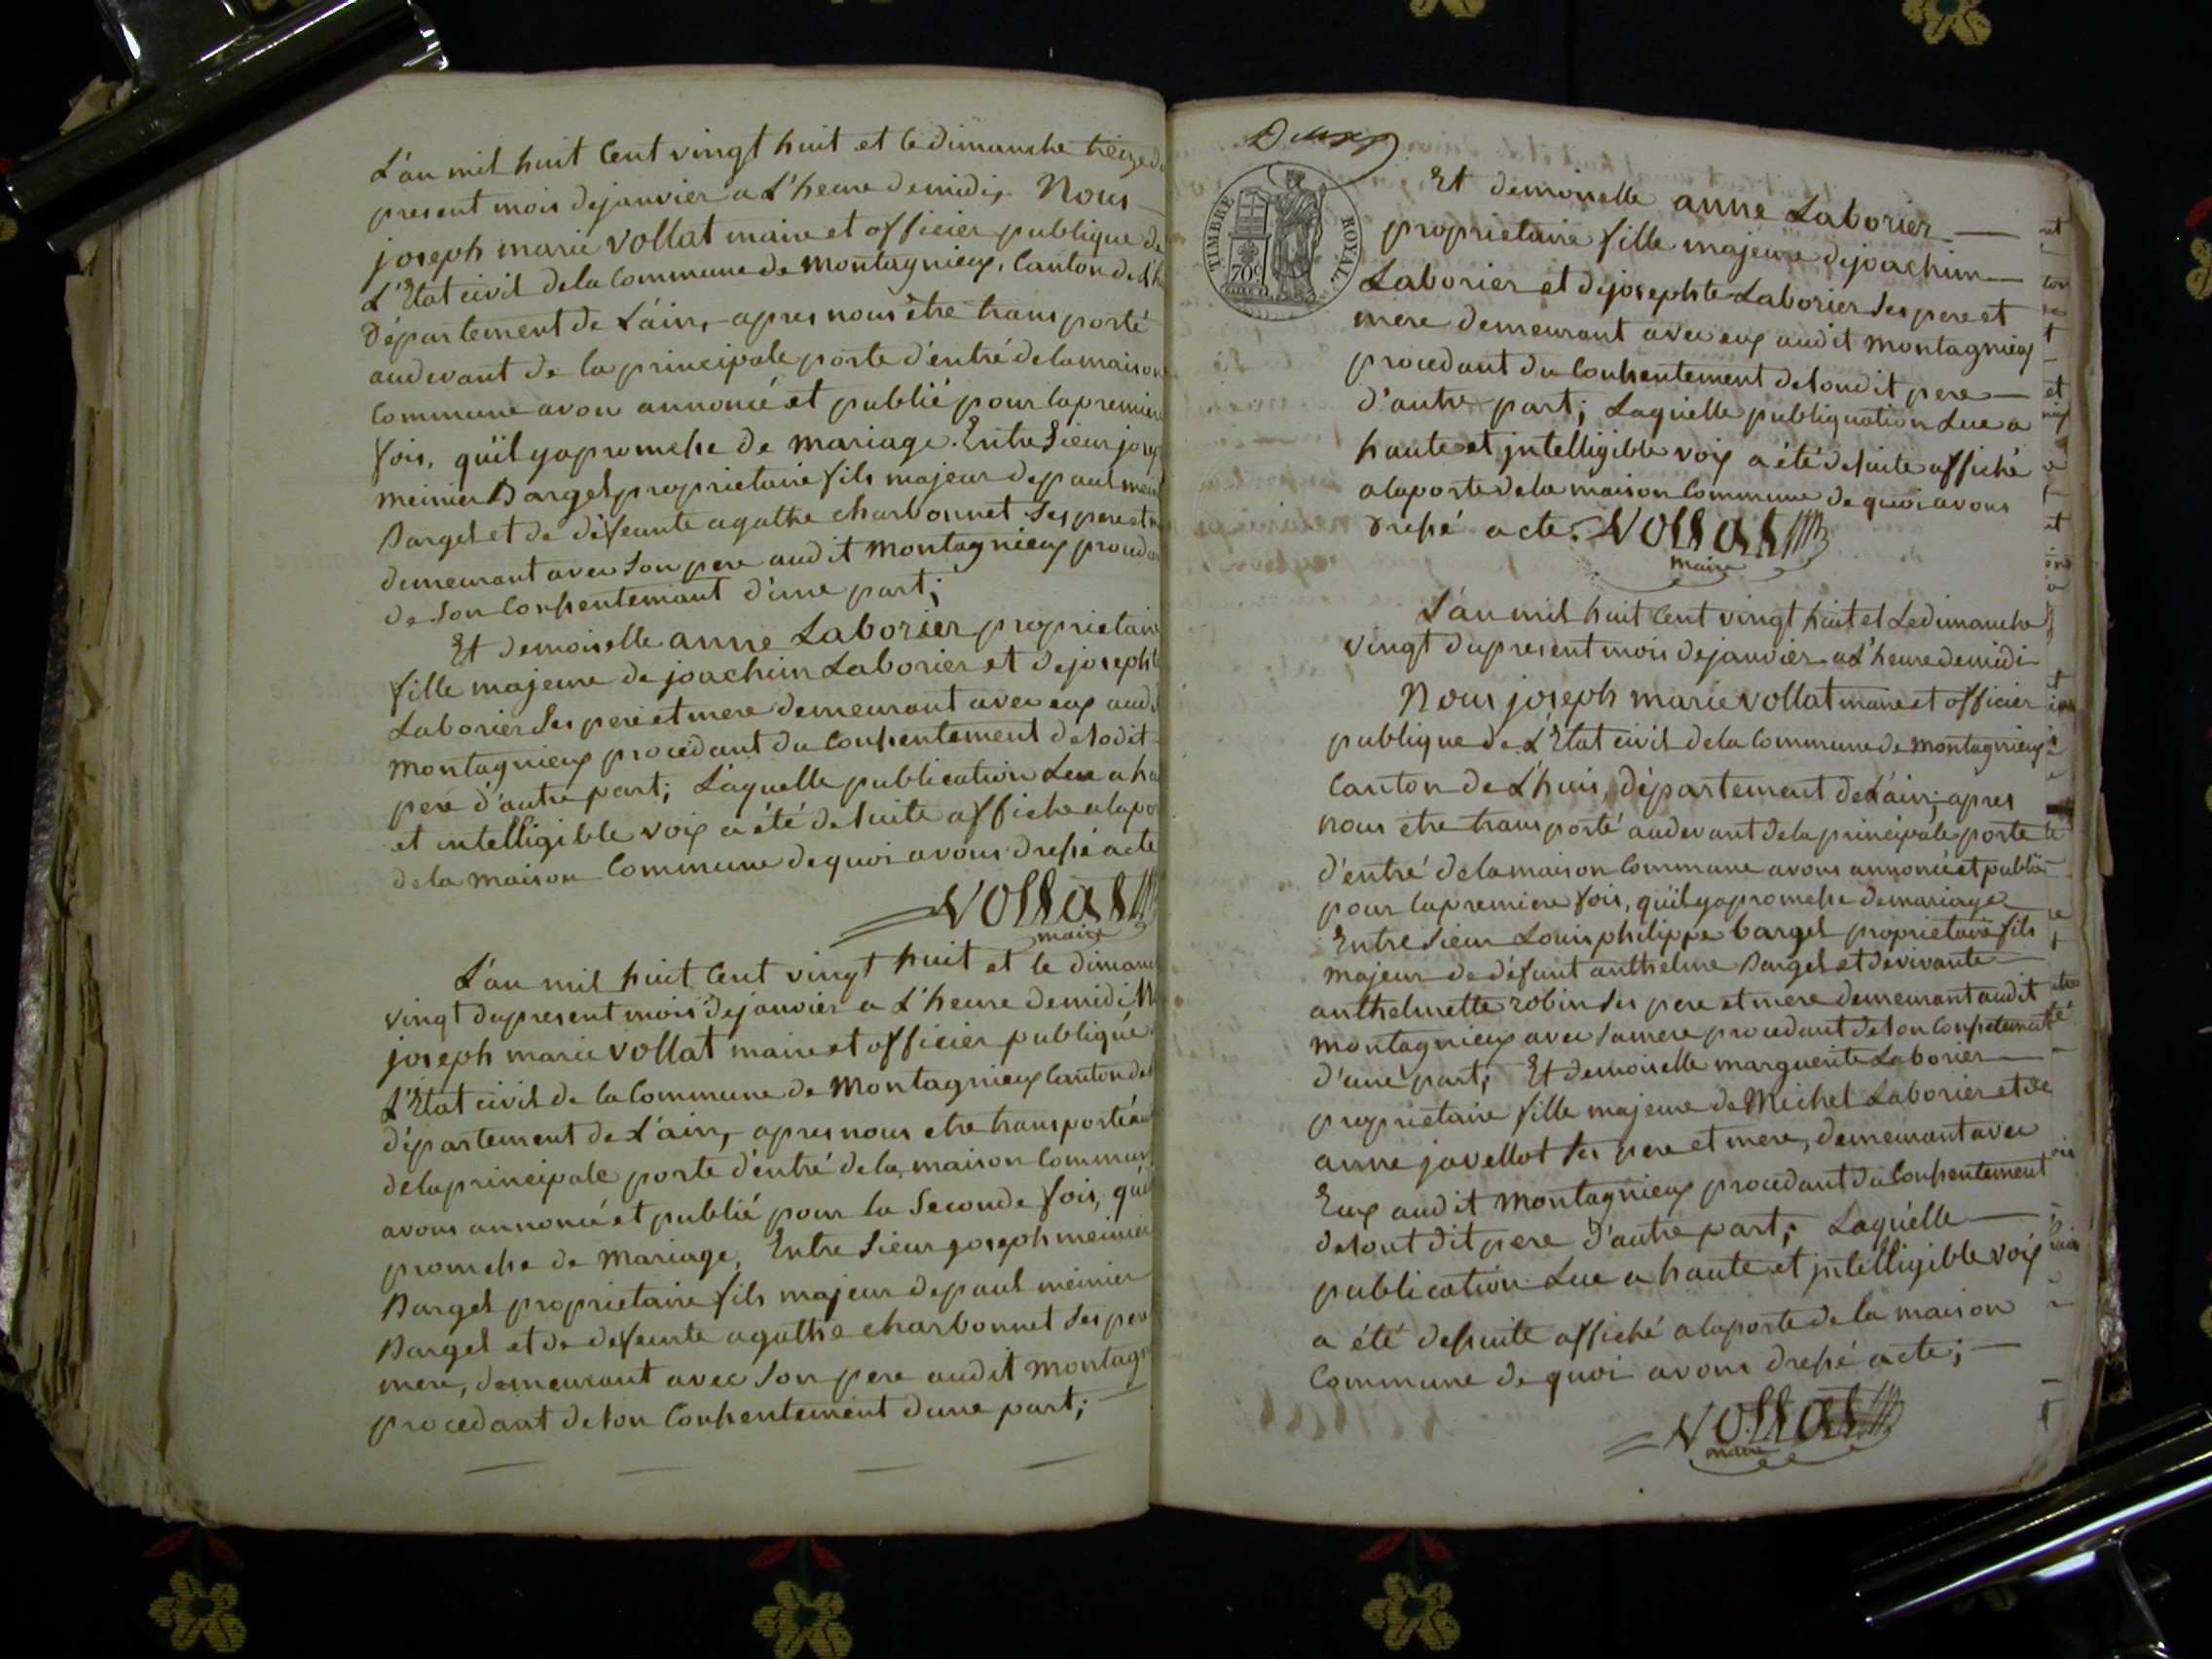 L'an mil huit Cent vingt huit et le dimanche treize du
present mois de janvier a L'heure de midi, Nous
joseph marie Vollat maire et officier publique de
L'Etat civil de la Commune de Montagnieux, Canton de
Département de L'ain, apres nous être transporté
audevant de la principale porte d'entré de la maison
Commune avon annoncé et publié pour la premiere
fois, qu'il y a promesse de mariage. Entre Sieur
meinier Bargel proprietaire fils majeur de paul
Bargel et de défeunte agathe charbonnet Ses pere et
demeurant avec Son pere audit Montagnieux
de Son Consentemant d'une part;
Et demoiselle anne Laborier proprietaire
fille majeure de joachim Laborier et de josephte
Laborier Ses pere et mere demeurant avec eux audit
Montagnieux procedant du Consentement de sodit
pere d'autre part; Laquelle publication Lue a
et intelligible voix a été de suite affiche a la
de la maison Commune de quoi avons dressé acte
Vollat
maire
L'an mil huit Cent vingt huit et le dimanche
vingt du present mois de janvier a L'heure de midi
joseph marie Vollat maire et officier publique
L'Etat civil de la Commune de Montagnieux Canton de
département de L'ain, apres nous etre transporté
de la principale porte d'entré de la maison Commune
avons annoncé et publié pour la Seconde fois,
promesse de Mariage, Entre Sieur joseph meinier
Bargel proprietaire fils majeur de paul meinier
Bargel et de defeunte agathe charbonnet Ses pere
mere, demeurant avec Son pere audit
procedant de son Consentement d'une part;
Deux
TIMBRE ROYAL
70c
Et demoiselle anne Laborier
proprietaire fille majeure de joachim
Laborier et de josephte Laborier Ses pere et
mere demeurant avec eux audit Montagnieux
procedant du Consentement de sondit pere
d'autre part; Laquelle publiquation Lue a
haute et jntelligible voix a été de suite affiché
a la porte de la maison Commune de quoi avons
dressé acte. Vollat
maire
L'an mil huit Cent vingt huit et Le dimanche
vingt du present mois de janvier a L'heure de midi
Nous joseph marie Vollat maire et officier
publique de L'Etat civil de la Commune de Montagnieux
Canton de L'huis, département de L'ain; apres
nous etre transporté audevant de la principale porte
d'entré de la maison Commune avons annoncé et publié
pour la premiere fois, qu'il y a promesse de mariage
Entre Sieur Louis philippe bargel proprietaire fils
majeur de défunt anthelme Bargel et de vivante
anthelmette robin Ses pere et mere demeurant audit
Montagnieux avec Samere procedant de son
d'une part; Et demoiselle marguerite Laborier
proprietaire fille majeure de Michel Laborier et de
anne javellot Ses pere et mere, demeurant avec
Eux audit Montagnieux procedant du Consentement
de sont dit pere d'autre part; Laquelle
publication Lue a haute et jntelligible voix
a été de suite affiché a la porte de la maison
Commune de quoi avons dressé acte;
Vollat
maire